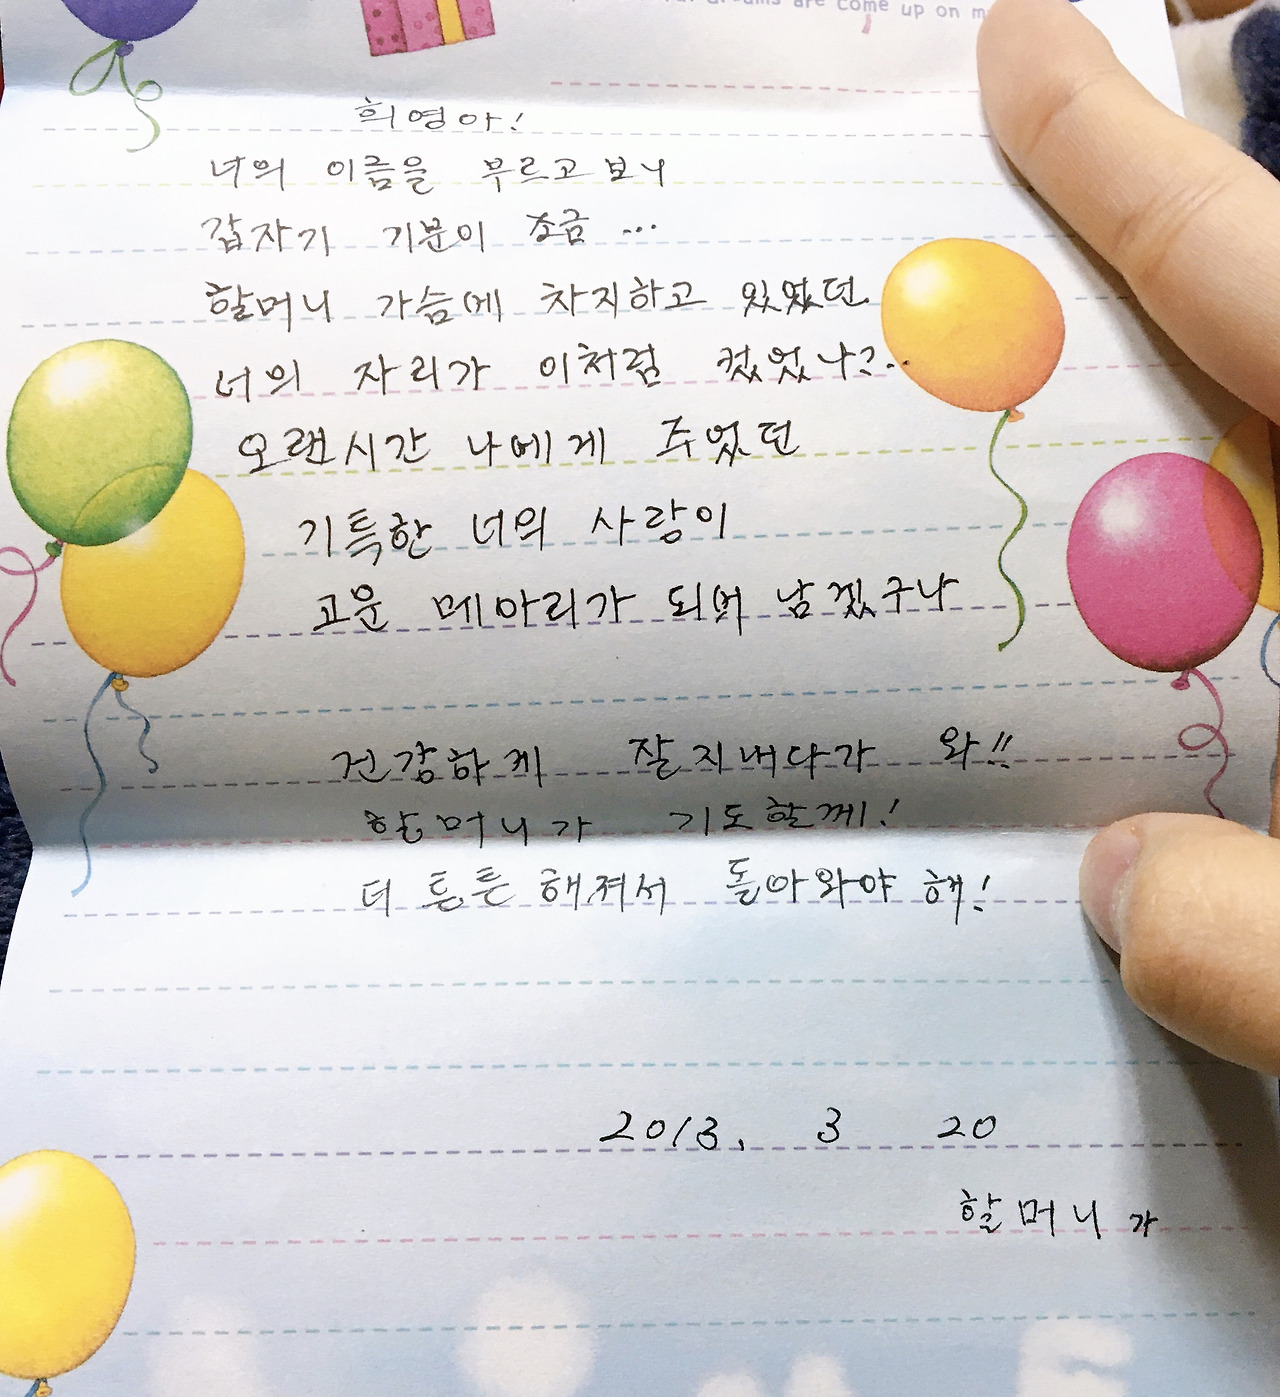 are come up on m
희영아!
너의 이름을 부르고 보니
갑자기 기분이 조금 ...
할머니 가슴에 차지하고 있었던
너의 자리가 이처럼 컸었나?..
오랜시간 나에게 주었던
기특한 너의 사랑이
고운 메아리가 되어 남겠구나
건강하게 잘 지내다가 와!!
할머니가 기도할께!
더 튼튼 해져서 돌아와야 해!
2013. 3 20
할머니가